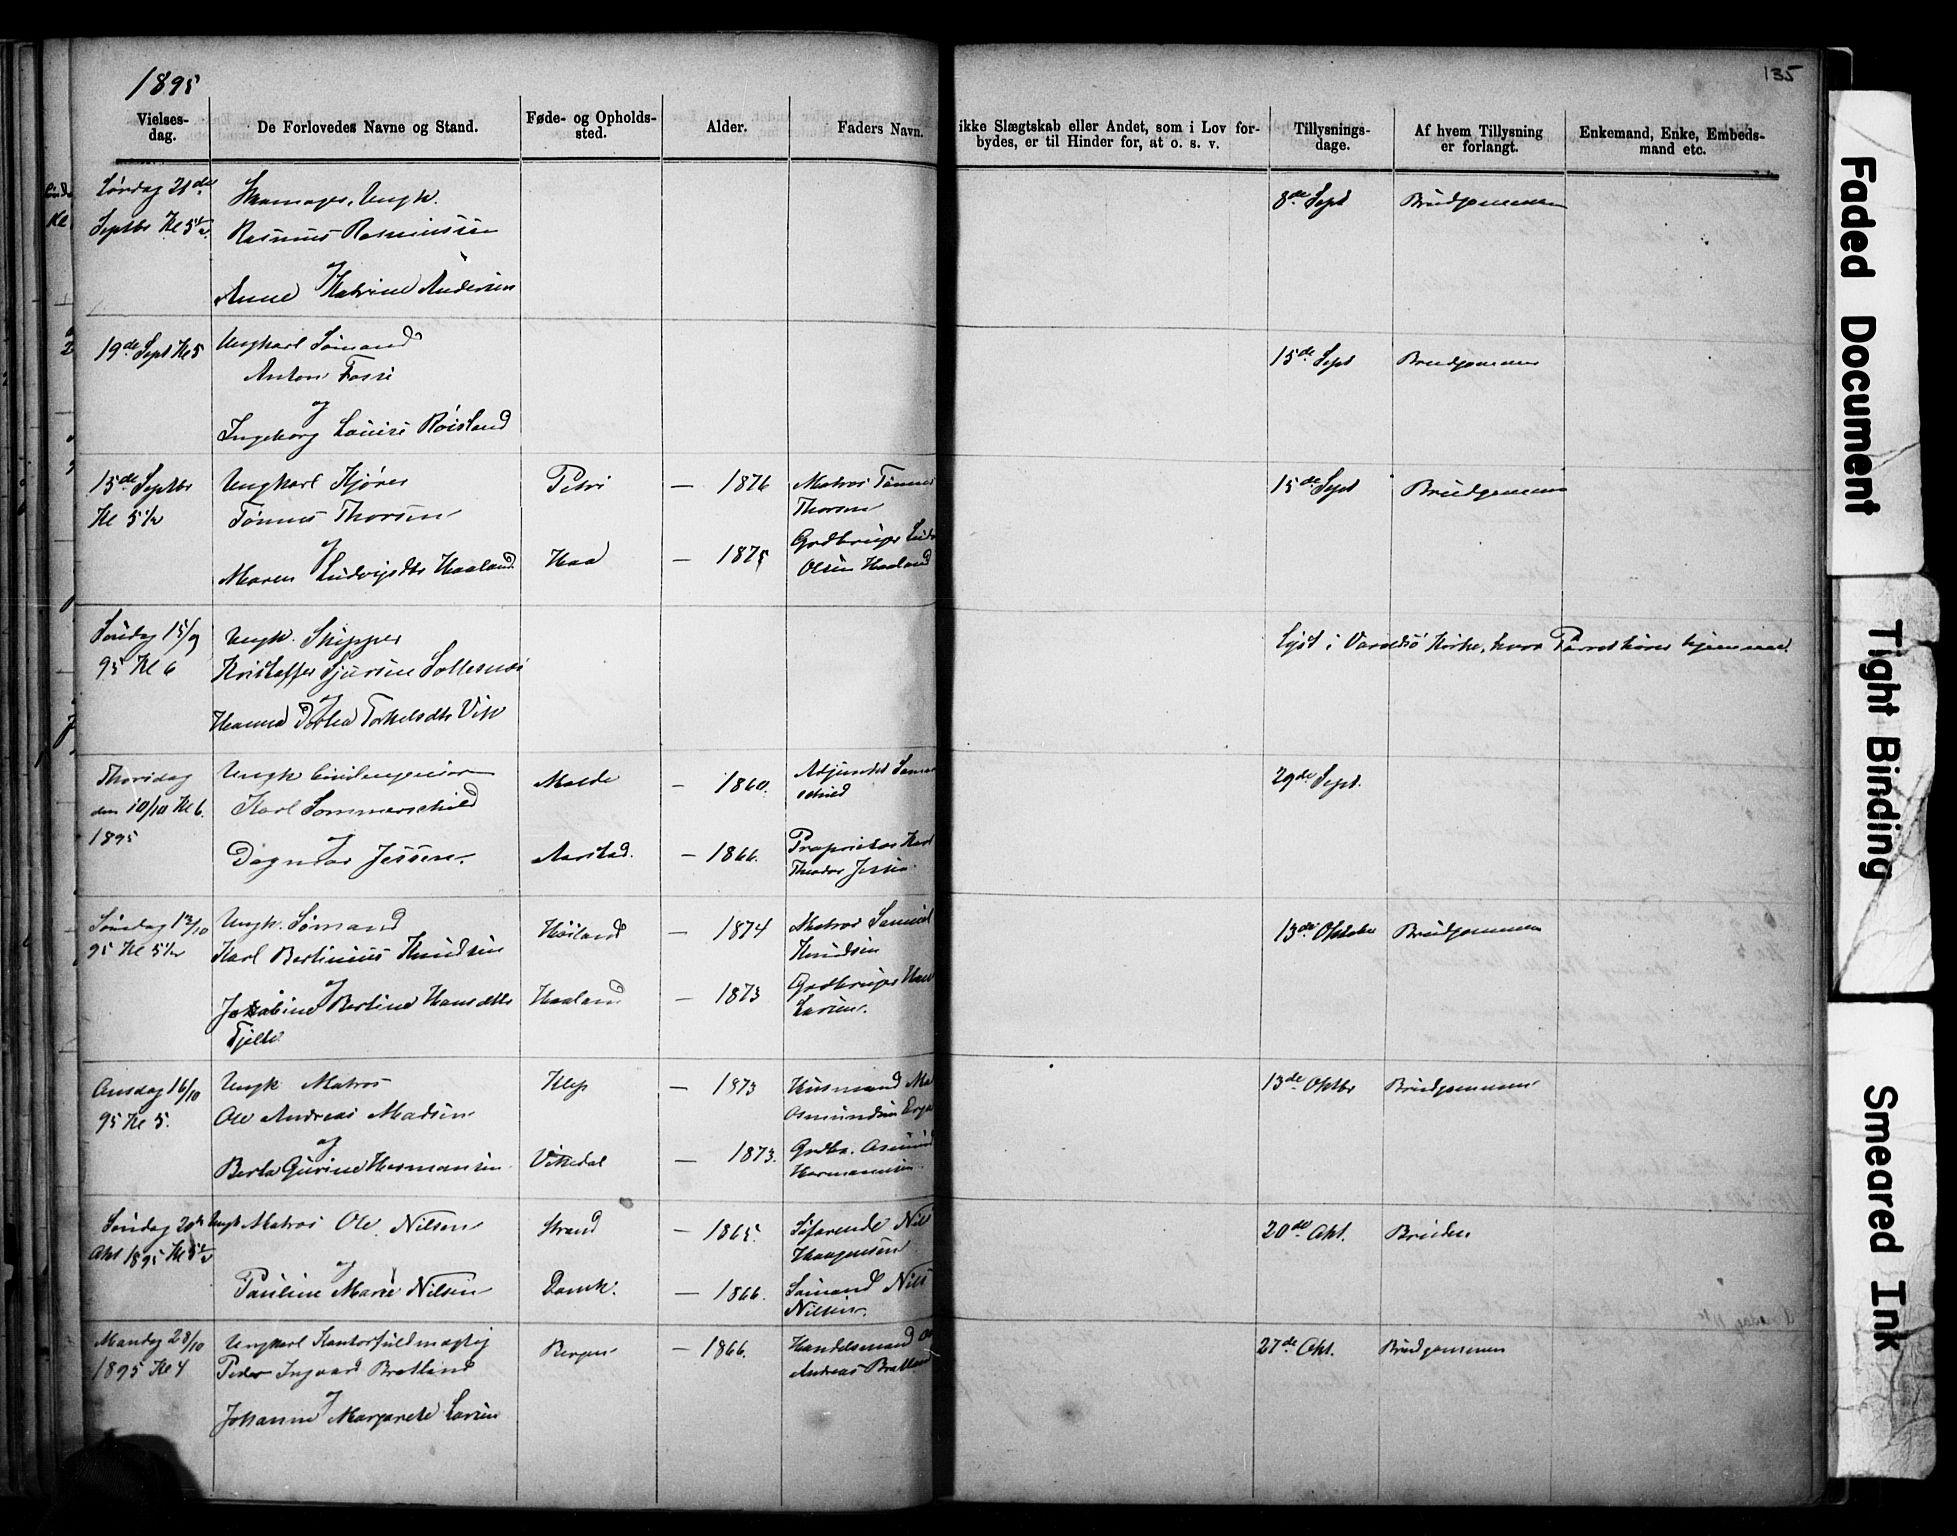 1895
135
Vielses-
dag.
De Forlovedes Navne og Stand.
Føde- og Opholds-
sted.
Alder.
Faders Navn.
ikke Slægtskab eller Andet, som i Lov for-
bydes, er til Hinder for, at o. s. v.
Tillysnings-
dage.
Af hvem Tillysning
er forlangt.
Enkemand, Enke, Embeds-
mand etc.
Lørdag 21de
Septbr Kl 5½
Skomager, Ungk.
Rasmus Rasmussen
og
Anne Katrine Andersen
8de Sept
Brudgommen
19de Sept Kl 5
Ungkarl Sømand
Anton Fosse
og
Ingeborg Louise Røisland
15de Sept
Brudgommen
15de Septbr
Kl 5½
Ungkarl Kjører
Tønnes Thorsen
og
Maren Ludvigsdtr Haaland
Petri
Haa
— 1876
— 1875
Matros Tønnes
Thorsen
Gardbruger
Olsen Haaland
15de Sept
Brudgommen
Søndag 15/9
95 Kl 6
Ungk. Skipper
Kristoffer Sjursen
og
Hanna Dorthea Torkelsdtr Vik
Lyst i Varaldsø Kirke, hvor Parret hører hjemme.
Thorsdag
den 10/10 Kl 6.
1895
Ungk Civilingeniør
Karl Sommerschild
og
Dagmar Jessen
Molde
Aarstad.
— 1860.
— 1866.
Adjunct Sommer
schild
Proprietær Karl
Theodor Jessen
29de Sept.
Søndag 13/10
95 Kl 5½
Ungk. Sømand
Karl Bertinius Knudsen
og
Jakobine Bertine Hansdtr
Tjelte
Høiland
Haaland
— 1874
— 1873
Matros Samuel
Knudsen
Gardbruger Hans
Larsen.
13de Oktober
Brudgommen
Onsdag 16/10
95 Kl 5.
Ungk Matros
Ole Andreas Madsen
og
Berta Gurine Hermansen
Klep
Vikedal
— 1873
— 1873.
Husmand
Osmundsen
Grdbr. Osmund
Hermansen
13de Oktbr
Brudgommen
Søndag 20de
Okt 1895 Kl 5½
Ungk Matros Ole Nilsen
og
Pauline Marie Nilsen
Strand
Danmk.
— 1865.
— 1866.
Søfarende Nils
Haagensen
Sømand Nils
Nilsen.
20de Okt.
Bruden
Mandag 28/10
1895 Kl 4
Ungkarl Kontorfuldmægtig
Peder Ingvard Bratland
og
Johanne Margarete Larsen
Bergen
— 1866.
Handelsmand
Andreas Bratland
27de Okt.
Brudgommen
Faded Document
Tight Binding
Smeared Ink